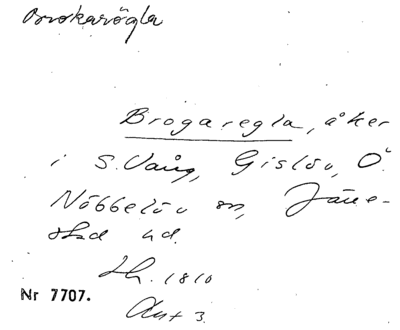 Brokarögla
Brogaregla, åker
i S. Vång, Gislöv, Ö.
Nöbbelöv sn, Järre-
stad hd.
Sk. 1810
Akt 3.
Nr 7707.